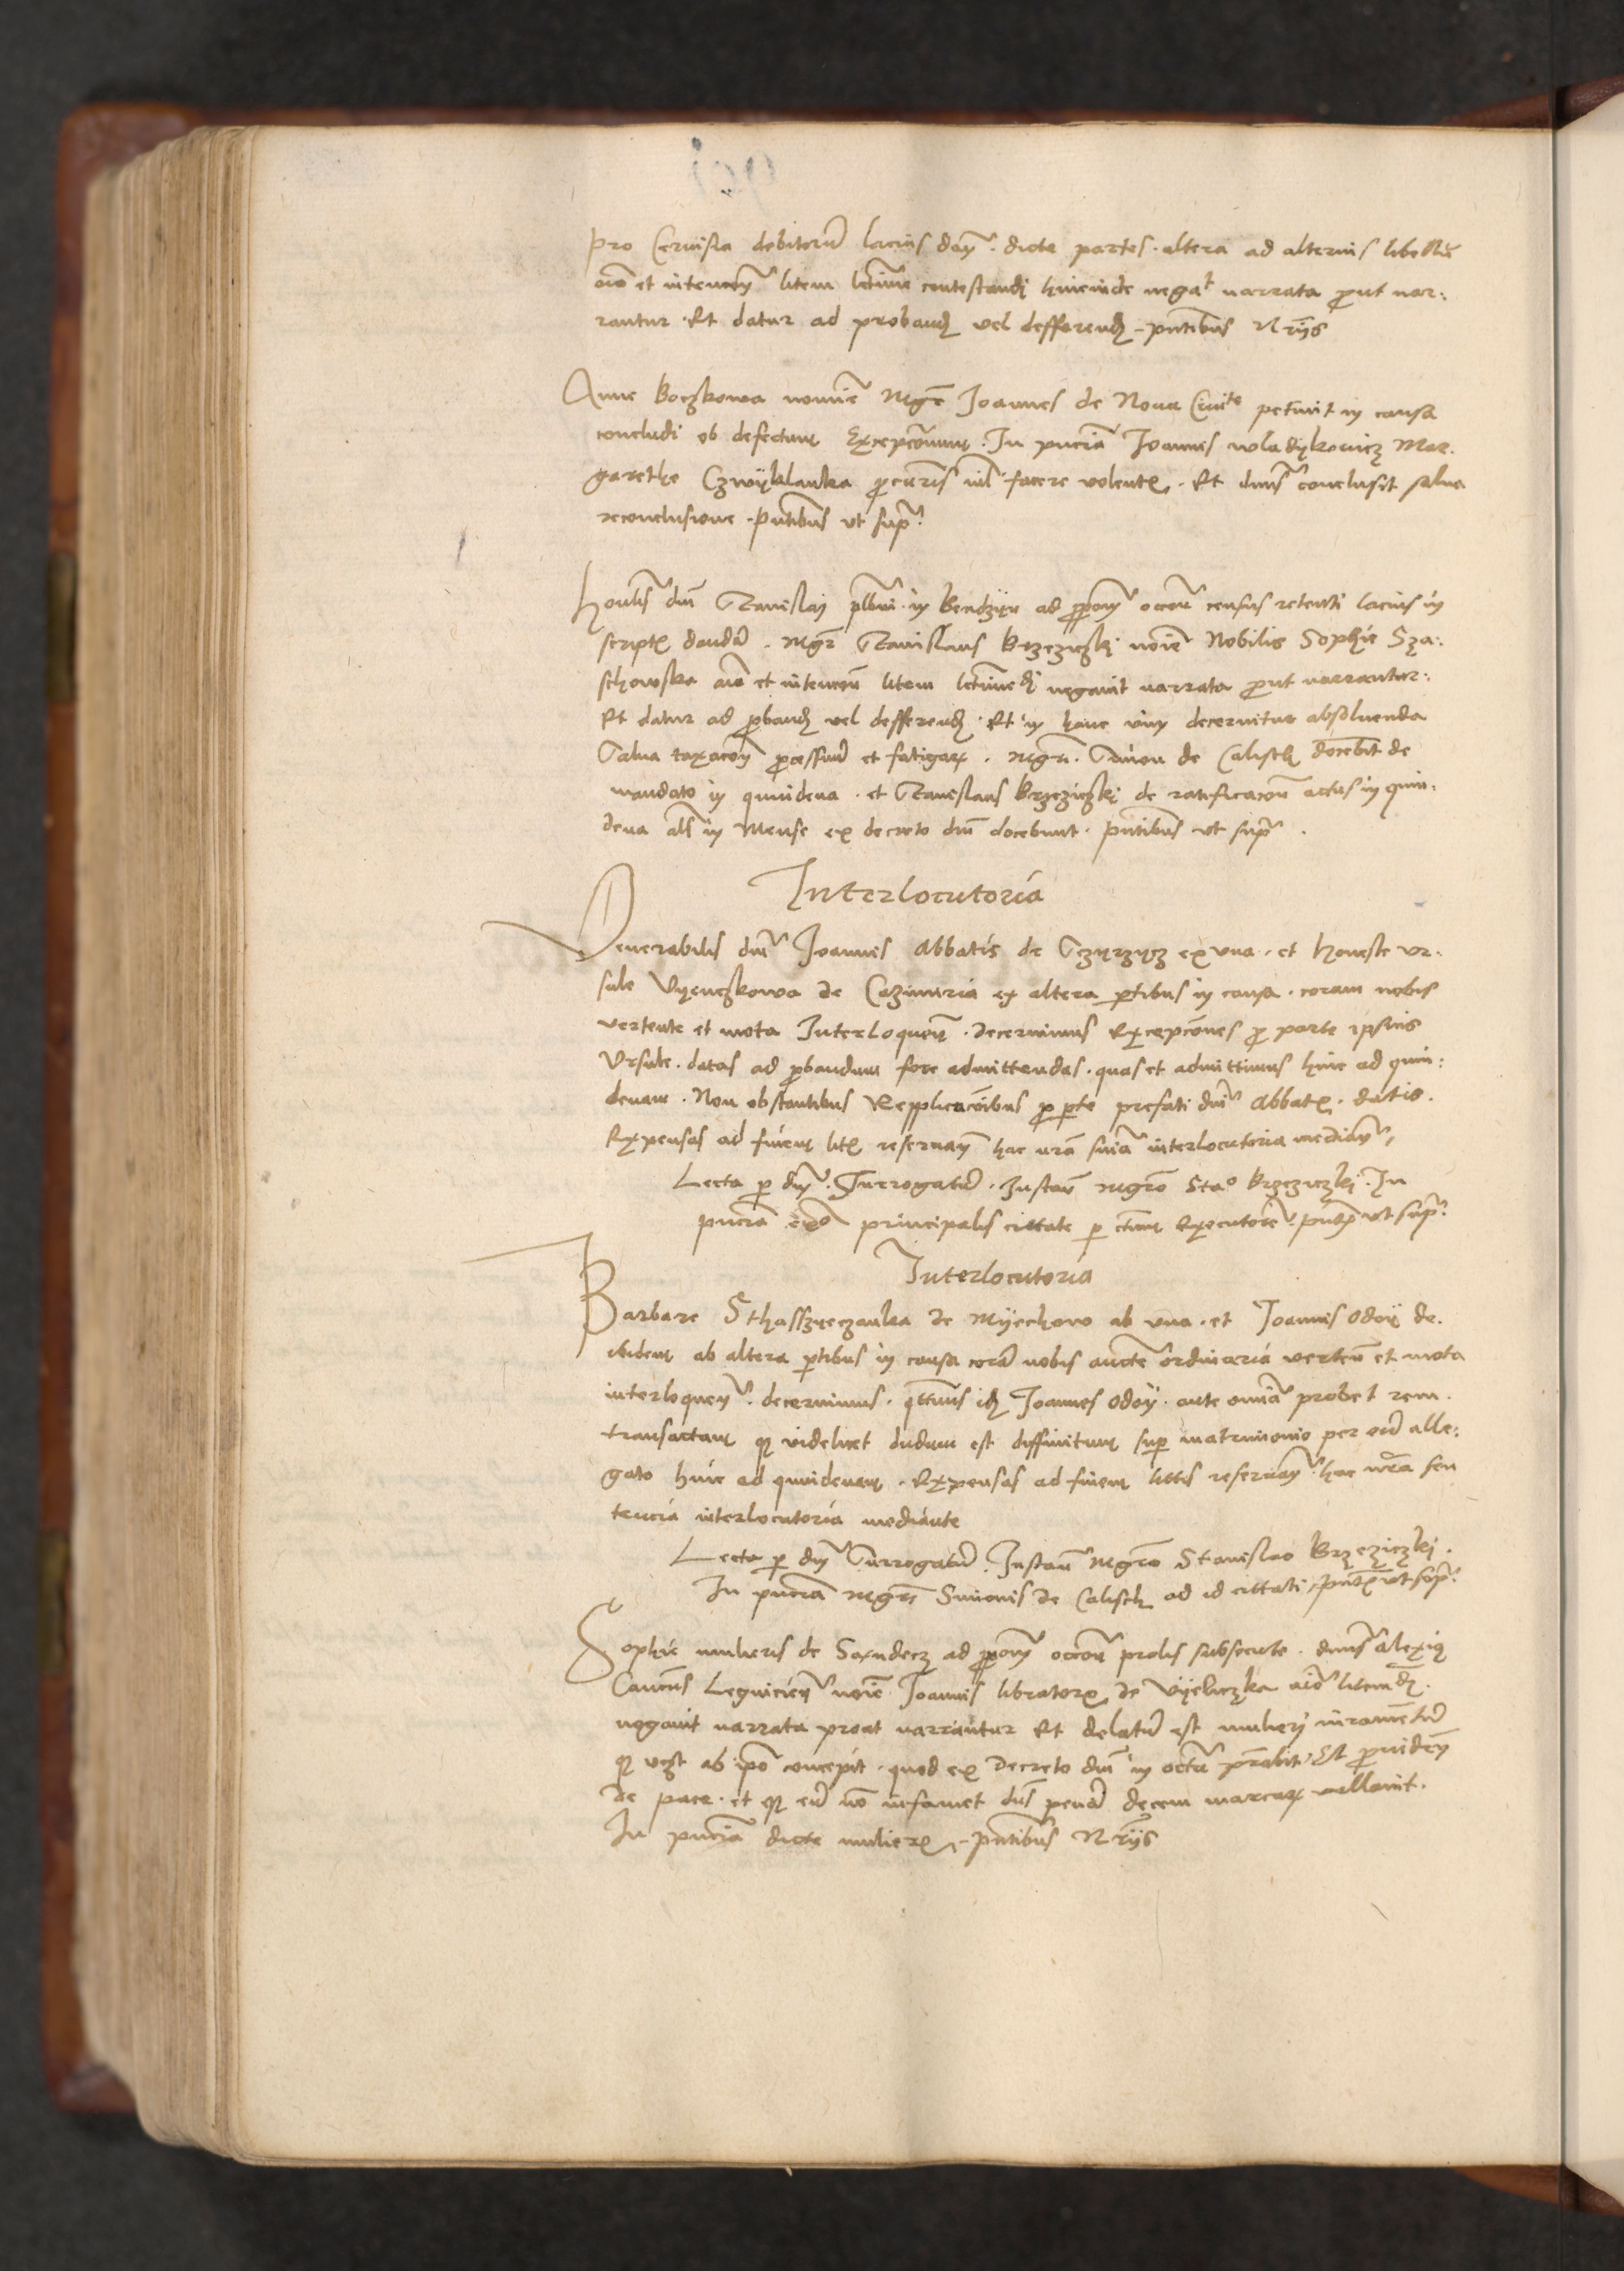 pro Cervisia debitorum lacius dam̄ dicte partes altera ad alterius libellum
aīo et intencōn̄ litem lēttime contestandi hincinde negat narrata prout nar:
rantur Et datur ad proband vel defferend pn̄tibus Nrÿs
Anne Boczkowa nomine Mgr̄ Joannes de Nova Civite petivit in causa
concludi ob defectum Excepcōnum . In pn̄cia Joannis wladikowicz Mar.
garethe Czwÿklanka procūris nīl facere volentis . Et dnus conclusit salva
reconclusione . pn̄tibus ut supra
Honblis dn̄i Stanislai plbni in Bendzÿn ad propōn̄ occōn̄ census retenti lacius in
scriptis dandum . Mgr̄ Stanislaus Brzeziczki noīe Nobilis Sophie Sza:
schowska aīo et intencōn̄ litem lēttime negavit narrata prout narrantur:
Et datur ad proband vel defferend . Et in hanc vim decernitur absolvenda
Salva taxacōn̄ processuum et fatigarum . Mgr̄ . Simon de Calisch docebit de
mandato in quindena . et Stanislaus Brzeziczki de ratificacōn̄ actus in quin:
dena als in Mense ex decreto dn̄i docebunt . pn̄tibus ut supra .
Interlocutoria
Venerabilis dn̄i Joannis Abbatis de Sczÿrzÿcz ex una . et honeste Ur:
sule Vÿenczkowa de Cazimiria ex altera partibus in causa . coram nobis
vertente et mota Interloquen̄ . decernimus Excepcōnes pro parte ipsius
Ursule . datas ad probandum fore admittendas . quas et admittimus hinc ad quin:
denam . Non obstantibus Repplicacōnibus pro parte prefati dn̄i Abbatis . datis .
Expensas ad finem litis reservan̄ hac nr̄a sn̄ia interlocutoria median̄
Lecta per dn̄ Surrogatum . Instan̄ Mgr̄o Stao Brzeziczki . In
pn̄cia principalis cittate per Executorē pn̄tibus ut supra
Interlocutoria
Barbare Sthasszÿeczanka de Mÿechovo ab una . et Joannis Odoÿ de .
ibidem ab altera partibus in causa coram nobis aucte ordinaria verten̄ et mota
interloquen̄ . decernimus . qtinus idem Joannes Odoÿ . ante omnia probet rem .
transactam quod videlicet dudum est diffinitum super matrimonio per eum alle:
gato hinc ad quindenam . Expensas ad finem littis reservan̄ hac nr̄a sen
tencia interlocutoria mediante
Lecta per dn̄ Surrogatum . Instan̄ Mgr̄o Stanislao Brzeziczki .
In pn̄cia Mgr̄i Simonis de Calisch ad id cittati pn̄tibus ut supra
Sophie mulieris de Sandecz ad propōn̄ occōn̄ prolis subsecute . dnus Alexius
Canens Legnicien̄ noīe Joannis libratoris de Vÿeliczka aīo litem
negavit narrata prout narrantur Et delatum est mulieri iuramentum
quod ab ipso concepit . quod ex Decreto dn̄i in octa prestabit . Est providen̄
de pace . et quod eum non infamet dns penam decem marcarum vallavit .
In pn̄cia dicte mulieris . pn̄tibus Nrÿs